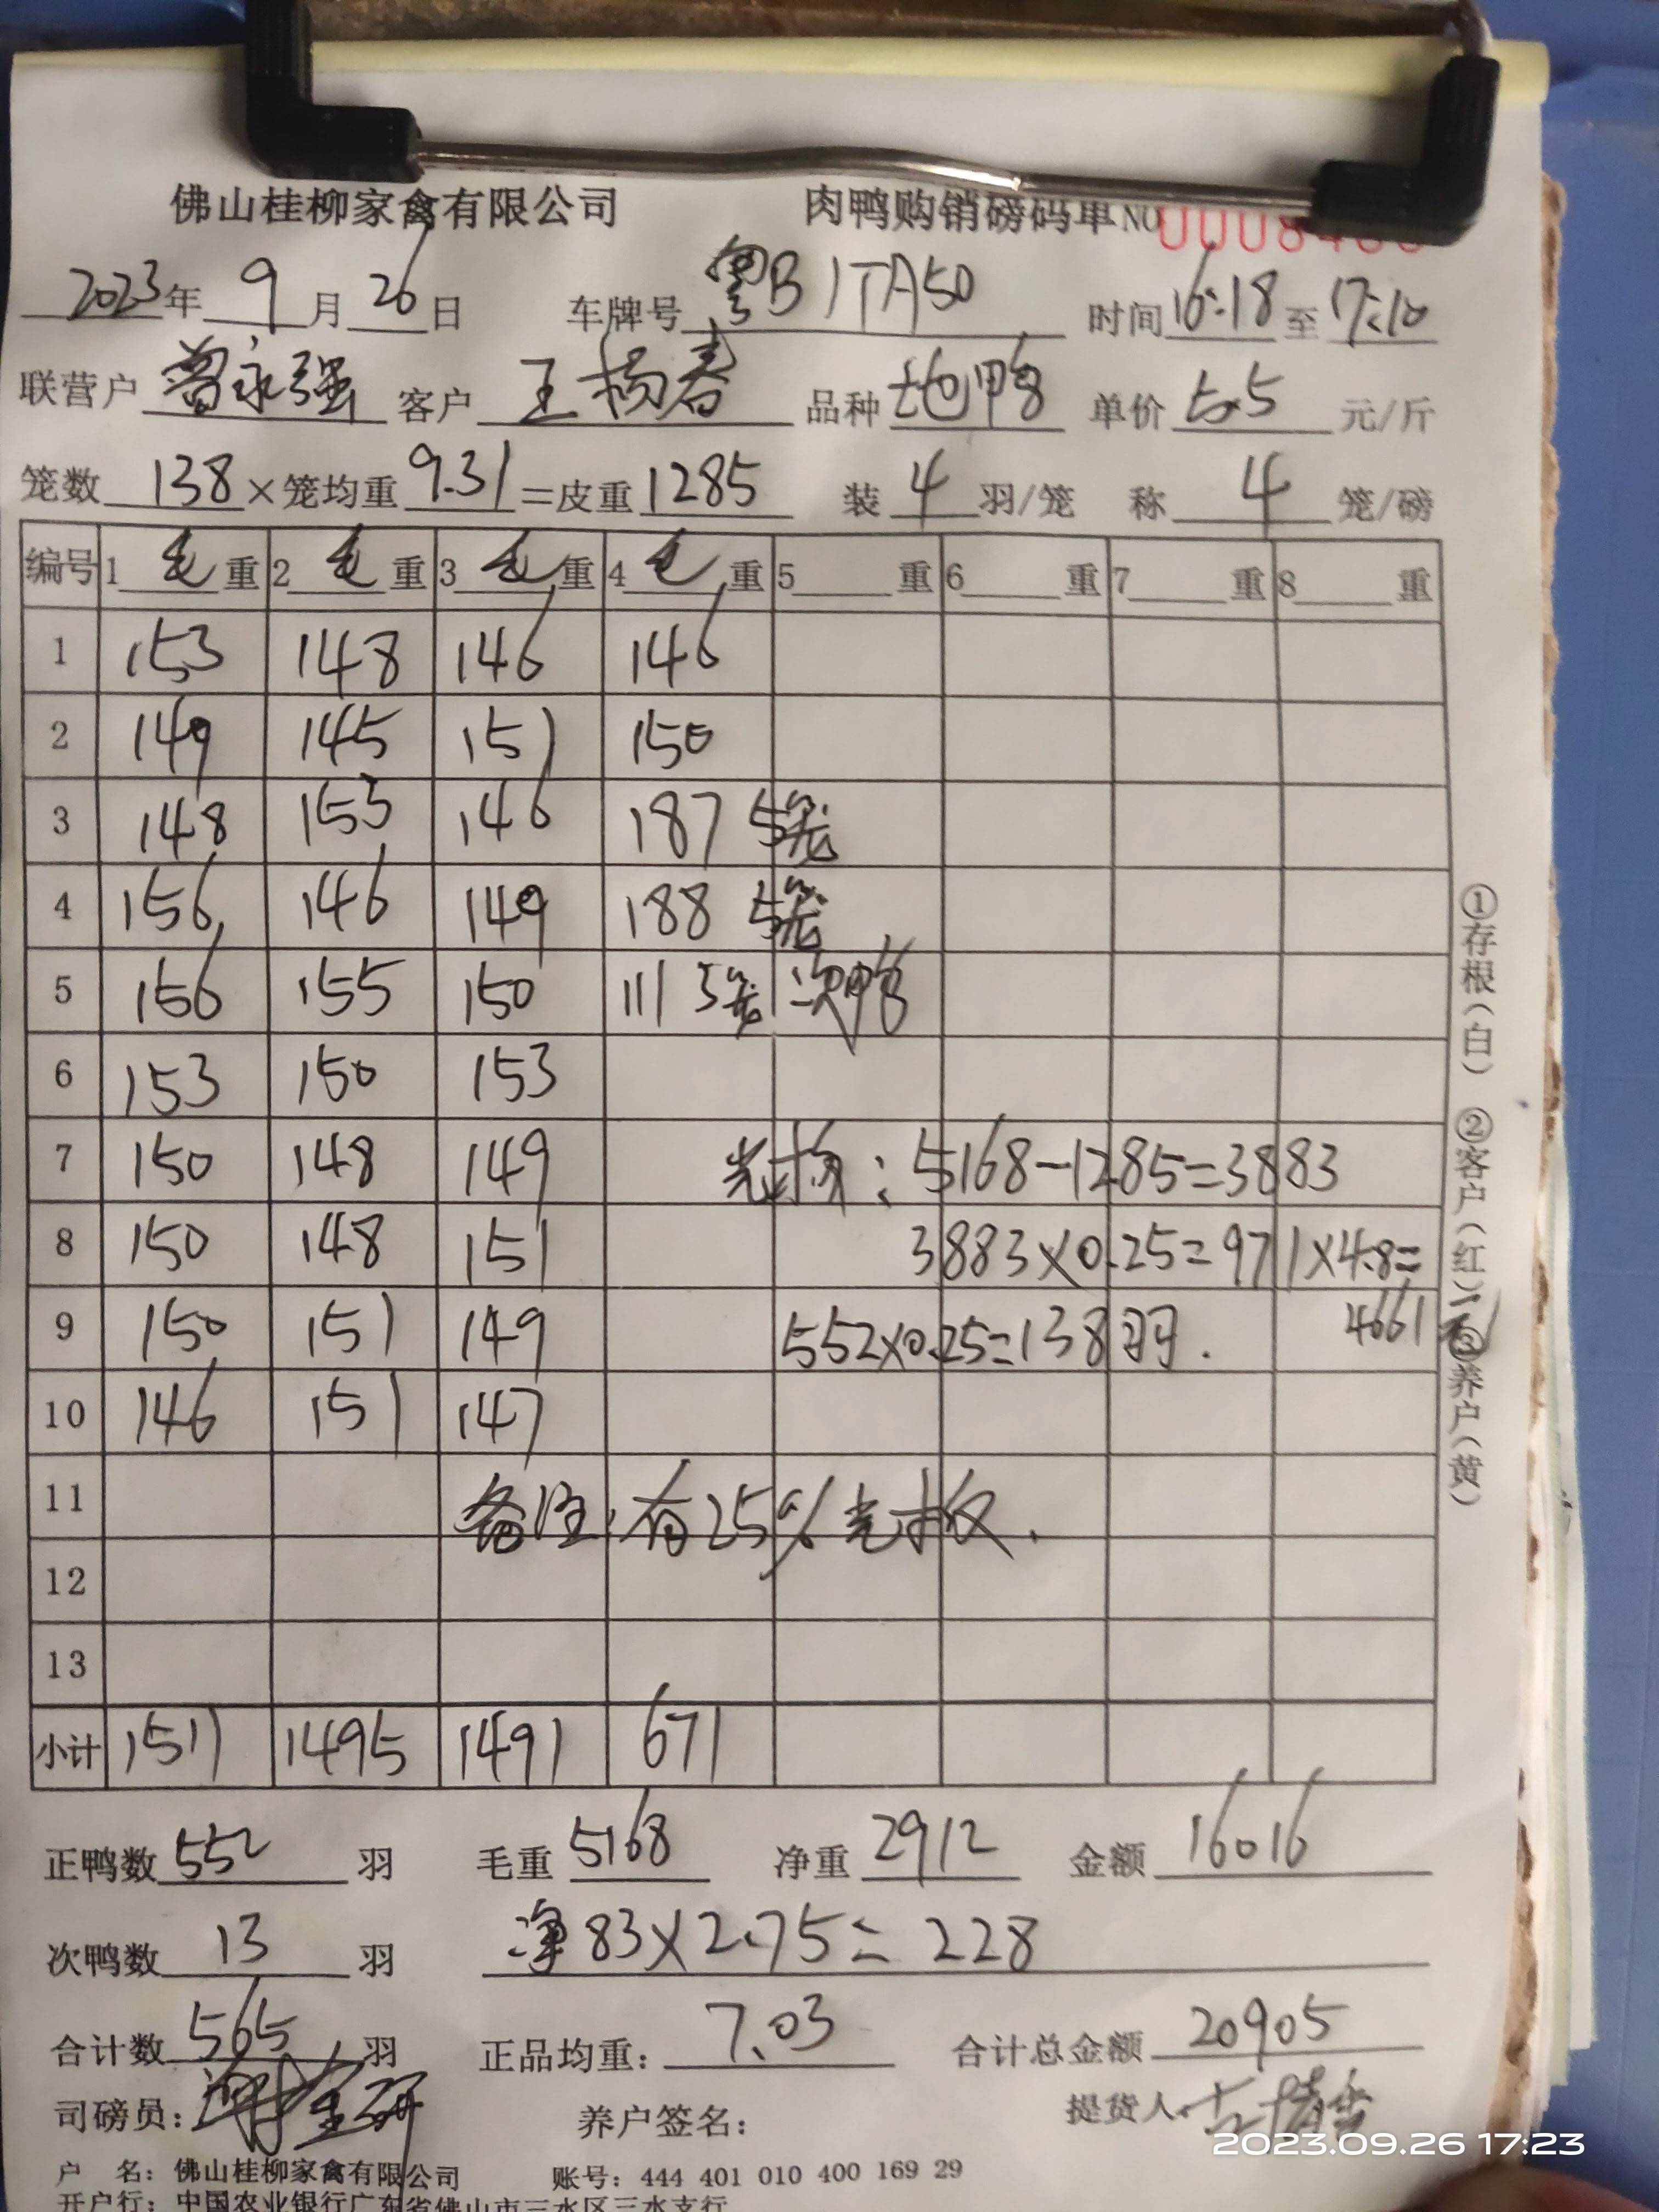 佛山桂柳家禽有限公司 肉鸭购销磅码单 NO
2023年 9月 26日 车牌号 粤B1TA50 时间 16:18 至 17:10
联营户 曾永强 客户 王杨春 品种 土也鸭 单价 5.5 元/斤
笼数 138 × 笼均重 9.31 = 皮重 1285 装 4 羽/笼 称 4 笼/磅
编号 1 毛 重 2 毛 重 3 毛 重 4 毛 重 5 重 6 重 7 重 8 重
1 153 148 146 146
2 149 145 151 150
3 148 153 146 187 5笼
4 156 146 149 188 5笼
5 156 155 150 111 3笼 次鸭
6 153 150 153
7 150 148 149 光板: 5168-1285=3883
8 150 148 151 3883×0.25=971×4.8=
9 150 151 149 552×0.25=138羽. 4661元
10 146 151 147
11 备注:有25%光板.
12
13
小计 1511 1495 1491 671
①存根(白) ②客户(红) ③养户(黄)
正鸭数 552 羽 毛重 5168 净重 2912 金额 16016
次鸭数 13 羽 净83×2.75=228
合计数 565 羽 正品均重: 7.03 合计总金额 20905
司磅员: 养户签名: 提货人:
户 名: 佛山桂柳家禽有限公司 账号: 444 401 010 400 169 29
开户行: 中国农业银行广东省佛山市三水区三水支行
2023.09.26 17:23